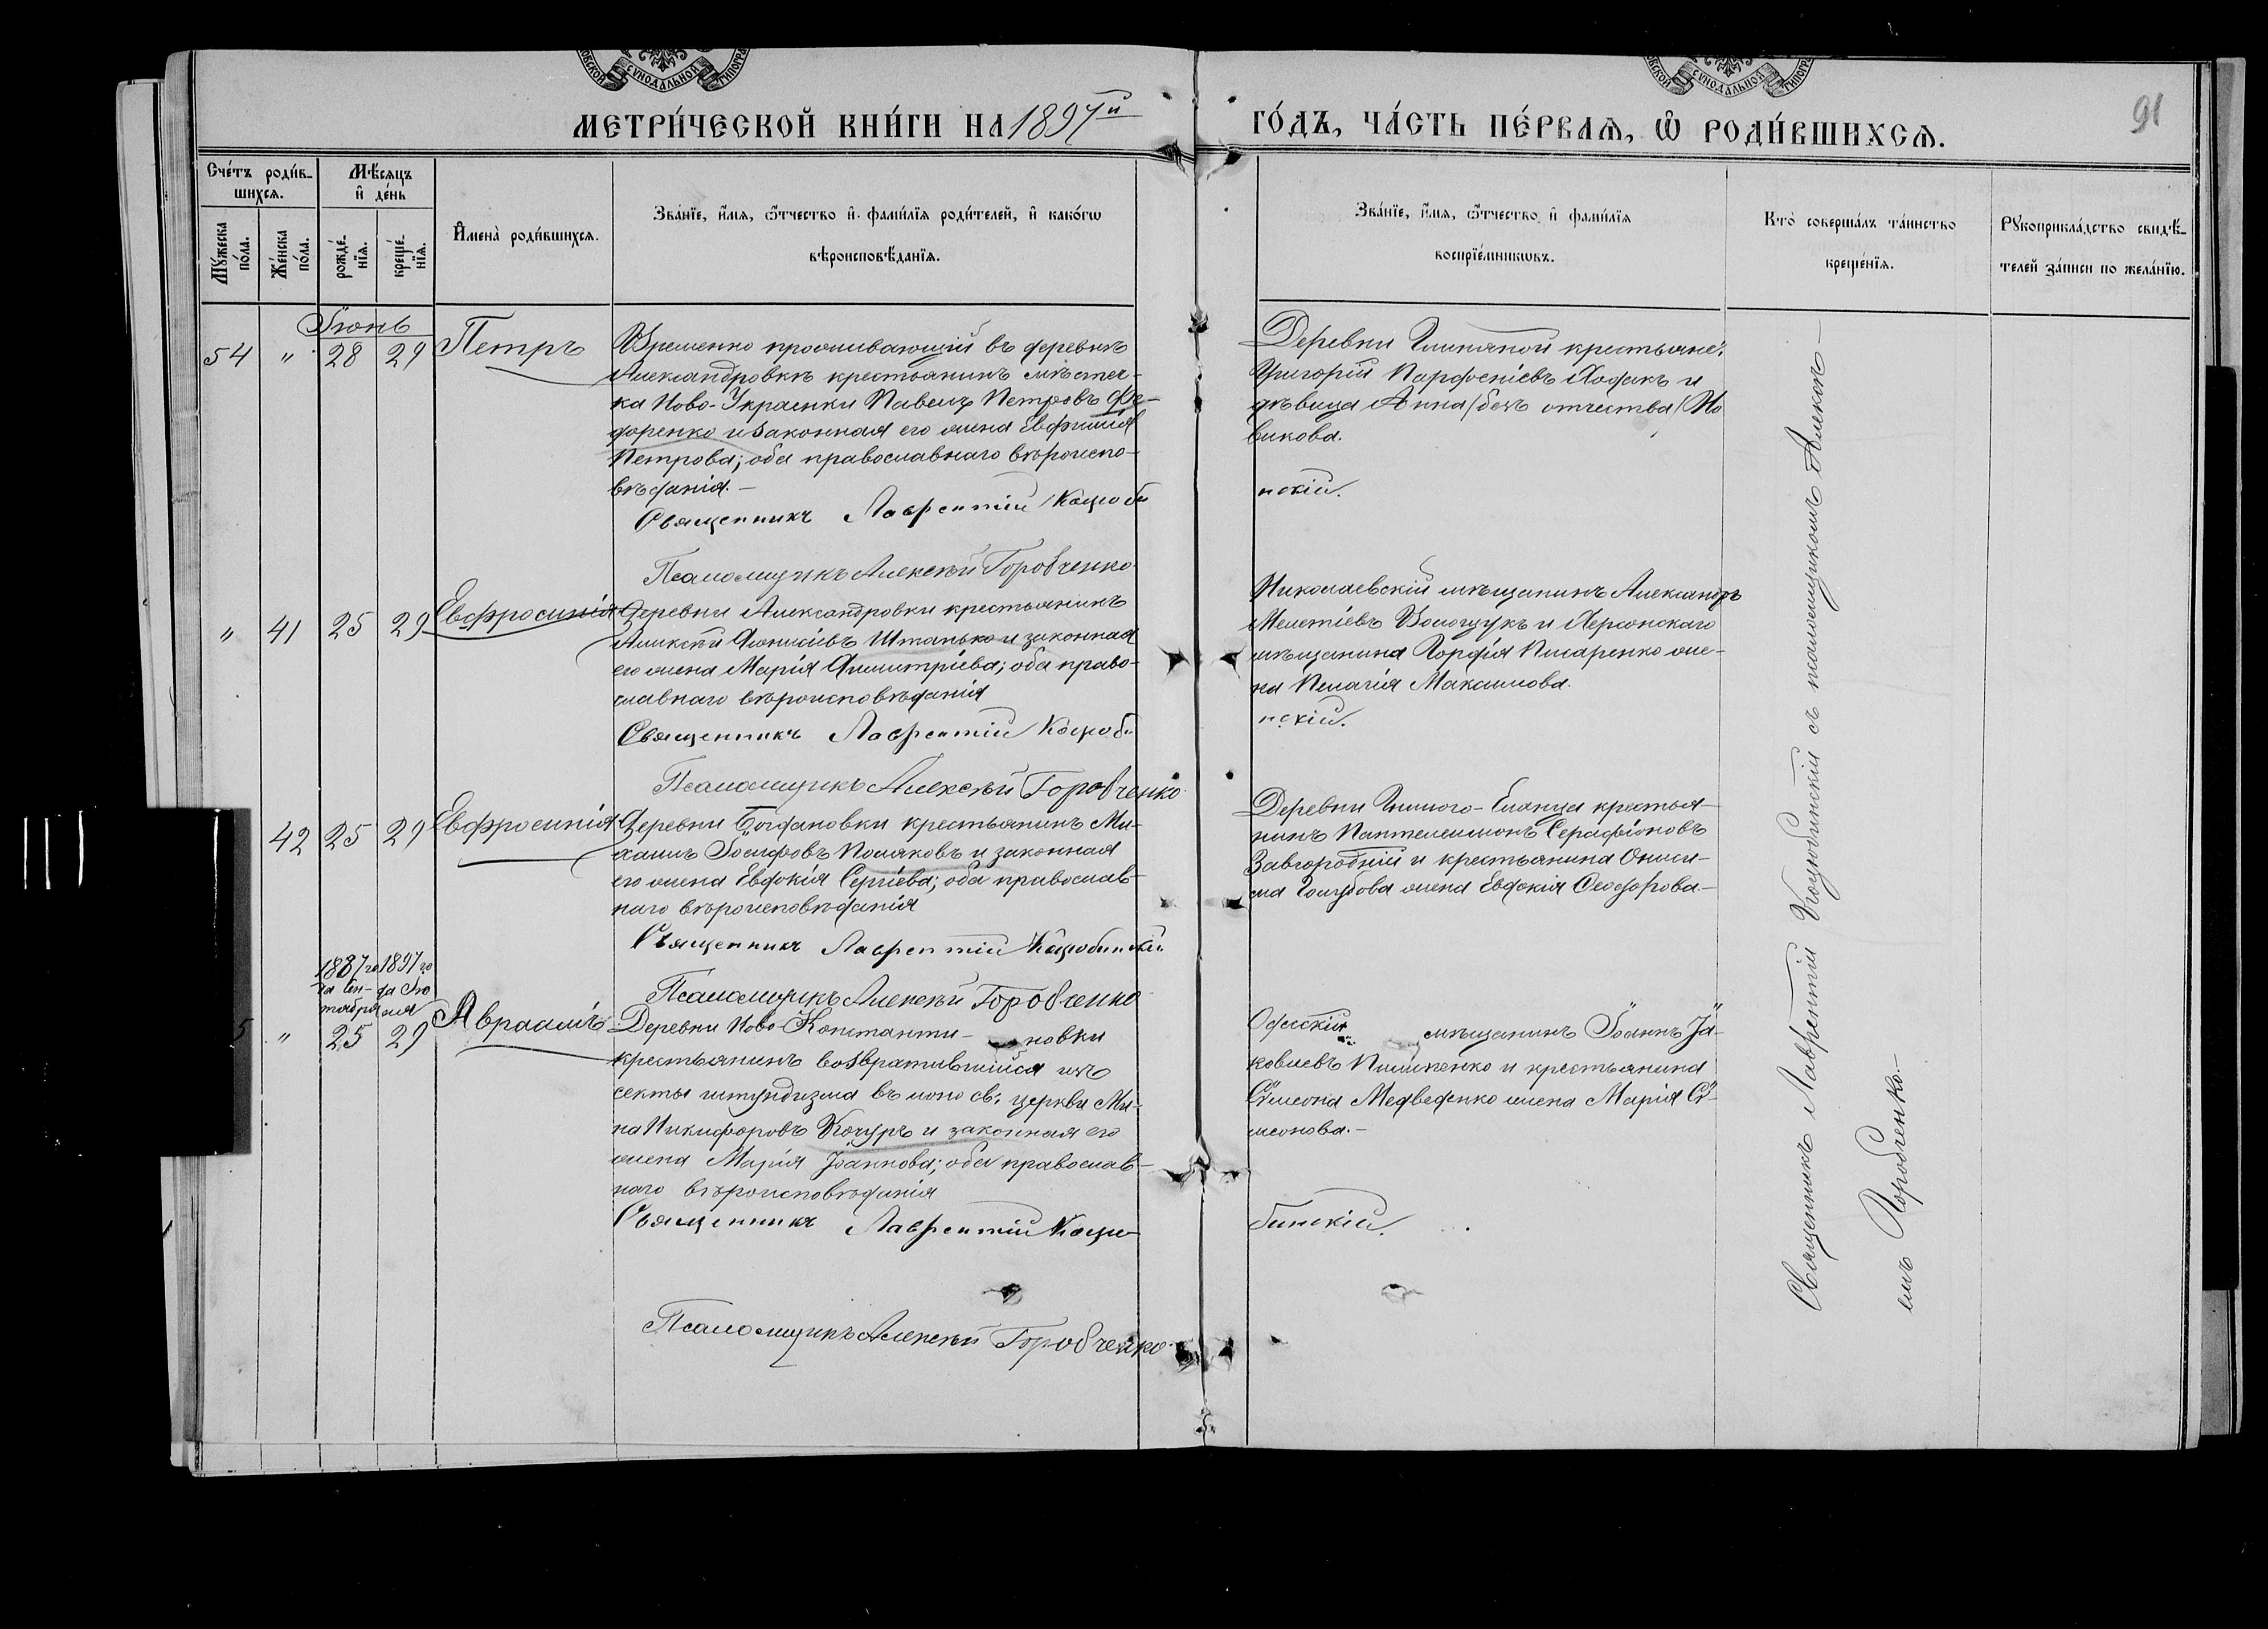 МЕТРИ́ЧЕСКОЙ КНИ́ГИ НА 1897й
ГО́ДЪ, ЧА́СТЬ ПЕ́РВАѦ, Ѡ҆ РОДИ́ВШИХСѦ.
91
Сче́тъ роди́в-
шихсѧ.
Мѣ́сѧцъ
и҆ де́нь
Мꙋ́жеска
по́ла.
Же́нска
по́ла.
рожде́-
нїѧ.
креще́-
нїѧ.
И҆мена̀ роди́вшихсѧ.
Зва́нїе, и҆́мѧ, ѻ҆́тчество и҆ фами́лїѧ роди́телей, и҆ како́гѡ
вѣроисповѣ́данїѧ.
Зва́нїе, и҆́мѧ, ѻ҆́тчество и҆ фами́лїѧ
воспрїе́мникѡвъ.
Кто̀ соверша́лъ та́инство
креще́нїѧ.
Рꙋкоприкла́дство свидѣ́-
телей за́писи по жела́нїю.
Іюнь
54 " 28 29 Петръ
Временно проживающій въ деревнѣ
Александровкѣ крестьянинъ мѣстеч-
ка Ново-Украинки Павелъ Петровъ Фе-
доренко и законная его жена Евфимія
Петрова; оба православнаго вѣроиспо-
вѣданія.-
Священникъ Лаврентій Коцюби
Псаломщикъ Алексѣй Горобченко
Деревни Глиняной крестьяне:
Григорій Парфеніевъ Ходакъ и
дѣвица Анна /безъ отчества/ Но
викова.
нскій.
" 41 25 29 Евфросинія
Деревни Александровки крестьянинъ
Алексѣй Діонисіевъ Штанько и законная
его жена Марія Димитріева; оба право-
славнаго вѣроисповѣданія
Священникъ Лаврентій Коцюби
Псаломщикъ Алексѣй Горобченко
Николаевскій мѣщанинъ Александръ
Мелетіевъ Волощукъ и Херсонскаго
мѣщанина Гордія Писаренко же-
на Пелагія Максимова.
нскій.
42 25 29 Евфросинія
Деревни Богдановки крестьянинъ Ми-
хаилъ Іосифовъ Поляковъ и законная
его жена Евдокія Сергіева; оба православ-
наго вѣроисповѣданія
Священникъ Лаврентій Коцюбинскій
Псаломщикъ Алексѣй Горобченко
Деревни Гнилого-Еланца крестья-
нинъ Пантелеимонъ Серафіоновъ
Завгородній и крестьянина Ониси-
ма Голубова жена Евдокія Ѳеодорова-
1887 го 1897 го
да Сен- да Ію
тября ня
5 " 25 29 Авраамъ
Деревни Ново-Константи- новки
крестьянинъ возвратившійся изъ
секты штундизма въ лоно св: церкви Ми-
на Никифоровъ Кочуръ и законная его
жена Марія Іоаннова; оба православ-
наго вѣроисповѣданія
Священникъ Лаврентій Коцю-
Псаломщикъ Алексѣй Горобченко
Одесскій мѣщанинъ Іоаннъ Іа-
ковлевъ Пилипенко и крестьянина
Сѵмеона Медведенко жена Марія Сѵ-
меонова.-
бинскій.
Священникъ Лаврентій Коцюбинскій съ псаломщикомъ Алексѣ-
емъ Горобченко.-